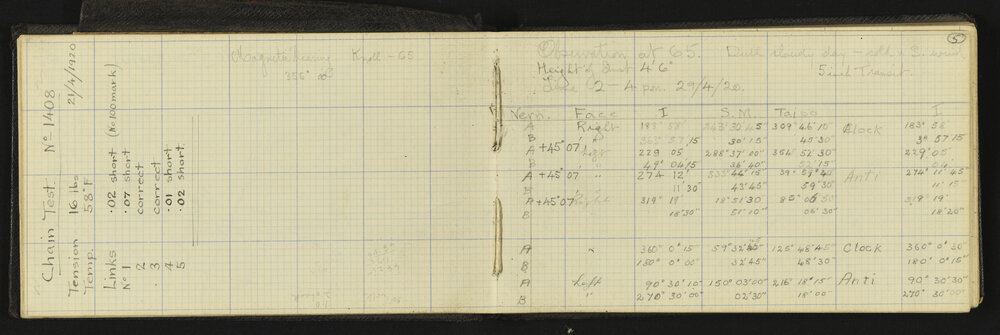 Chain Test. No 1408
21/4/1920
Tension 16 lbs
Temp. 58°F
Links .02 short (No 100 mark)
No 1 .07 short
2 correct
.3 correct
4 .01 short
5 .02 short.
Magnetic Bearing Knoll - 65
356° 00'
5
Observation at 65. Dull cloudy day - cold
Height of Inst 4' 6" 5 inch Transit.
2 - 4 pm. 29/4/20.
Vern. Face I S.M. Taipo I
A Right 183° 58' 30' 45" 309° 46' 10" Clock 183° 58'
B " 57' 15 30' 15" 45' 30" 57' 15
A +45° 07' Left 229 05 288° 37' 00" 354° 52' 30" 229° 05'
B " 49° 04' 15 36' 40" 52' 15"
A +45° 07 " 274 12' 46' 15" 59' 40" Anti 274° 11' 45"
B 11' 30" 43' 45" 59' 30" 11' 15"
A +45° 07 Right 319° 19' 18° 51' 30 319° 19'
B 18' 30" 51' 10" 18' 20"
A " 360° 0' 15 59° 32' 125° 48' 45" Clock 360° 0' 30"
B 180° 0' 00" 32' 45" 48' 30" 180° 0' 15"
A Left 90° 30' 10" 150° 03' 00" 216° 18' 15" Anti 90° 30' 30"
B " 270° 30' 00" 02' 30" 18' 00" 270° 30' 00"